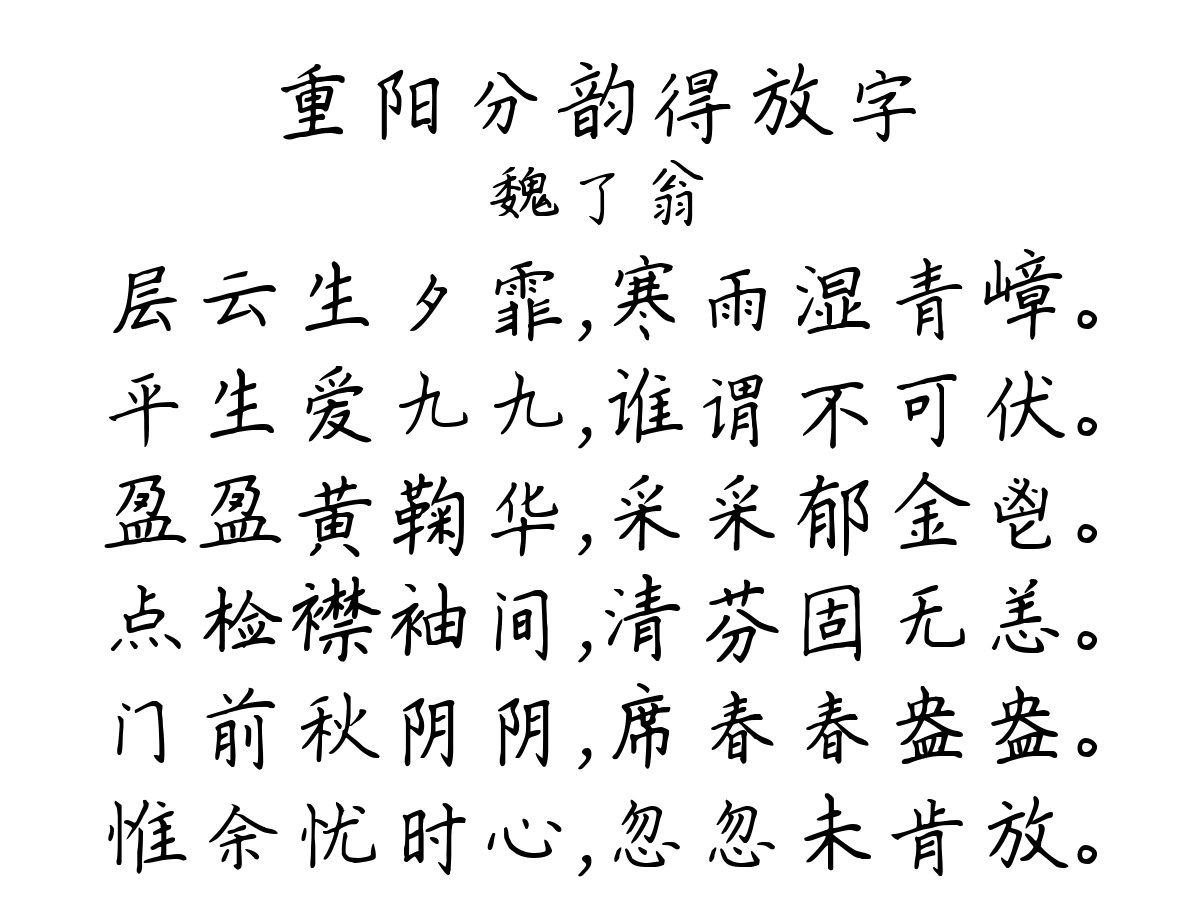 重阳分韵得放字
魏了翁
层云生夕霏,寒雨湿青嶂。
平生爱九九,谁谓不可伏。
盈盈黄鞠华,采采郁金鬯。
点检襟袖间,清芬固无恙。
门前秋阴阴,席春春盎盎。
惟余忧时心,忽忽未肯放。